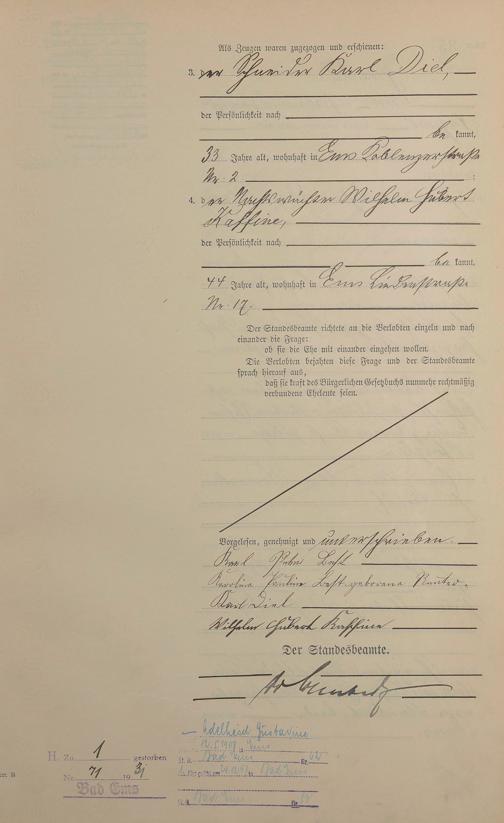 Als Zeugen waren zugezogen und erschienen:
3. der Schneider Karl Diel,
der Persönlichkeit nach
be kannt,
33 Jahre alt, wohnhaft in Ems Koblenzerstraße
Nr. 2 ;
4. der Nachtwächter Wilhelm Hubert
Kaffine,
der Persönlichkeit nach
be kannt,
44 Jahre alt, wohnhaft in Ems Lindenstraße
Nr. 17.
Der Standesbeamte richtete an die Verlobten einzeln und nach
einander die Frage:
ob sie die Ehe mit einander eingehen wollen.
Die Verlobten bejahten diese Frage und der Standesbeamte
sprach hierauf aus,
daß sie kraft des Bürgerlichen Gesetzbuchs nunmehr rechtmäßig
verbundene Eheleute seien.
Vorgelesen, genehmigt und unterschrieben.
Karl Peter Best
Karolina Pauline Best geborene
Karl Diel
Wilhelm Hubert Kaffine
Der Standesbeamte.
Adelheid Gustavine
Ems
Bad Ems Nr. 62
Bad Ems
Bad Ems Nr.
H. Zu 1 gestorben
Nr. 71 1931
Bad Ems